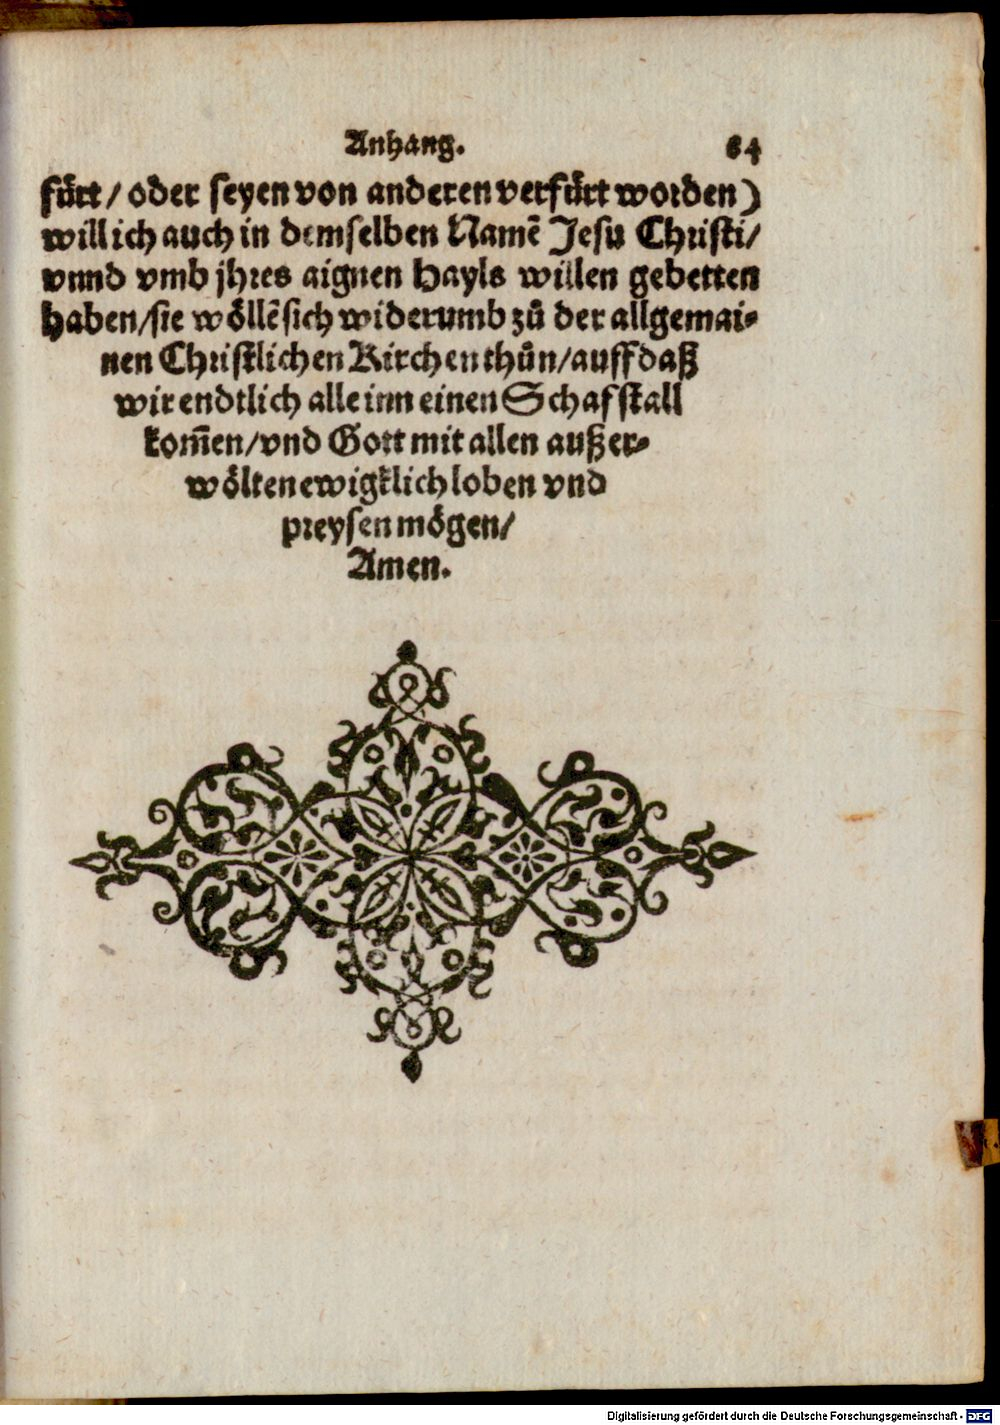 Anhang. 64
fürt/ oder seyen von anderen verfürt worden)
will ich auch in demselben Namẽ Jesu Christi/
vnnd vmb jhres aignen Hayls willen gebetten
haben/ sie wöllẽ sich widerumb zů der allgemai-
nen Christlichen Kirchen thůn/ auff daß
wir endtlich alle inn einen Schafstall
kom̃en/ vnd Gott mit allen außer-
wölten ewigklich loben vnd
preysen mögen/
Amen.
Digitalisierung gefördert durch die Deutsche Forschungsgemeinschaft - DFG